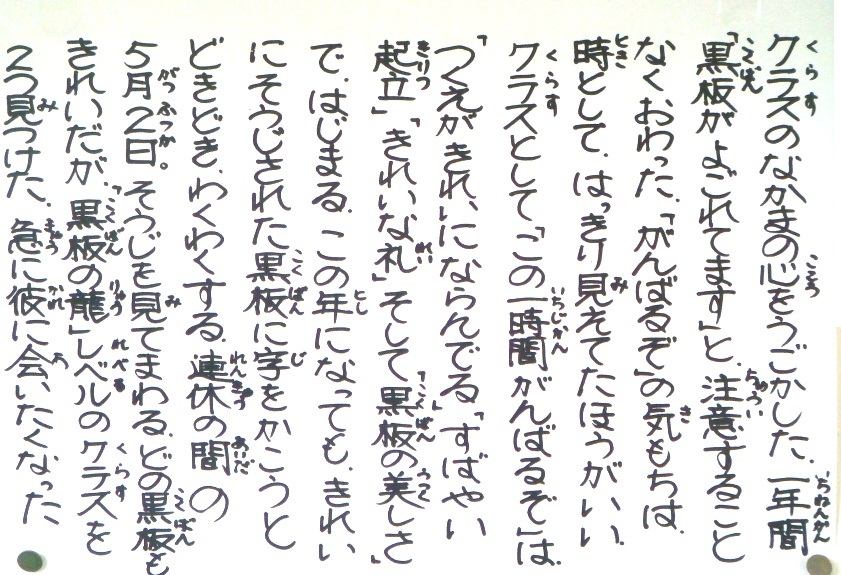 クラスのなかまの心をうごかした、一年間
「黒板がよごれてます」と、注意すること
なくおわった、「がんばるぞ」の気もちは、
時として、はっきり見えてたほうがいい、
クラスとして「この一時間がんばるぞ」は、
「つくえがきれいにならんでる」「すばやい
起立」「きれいな礼」そして「黒板の美しさ」
で、はじまる、この年になっても、きれい
にそうじされた黒板に字をかこうと
どきどき、わくわくする、連休の間の
5月2日。そうじを見てまわる、どの黒板も
きれいだが、「黒板の龍」レベルのクラスを
2つ見つけた、急に彼に会いたくなった